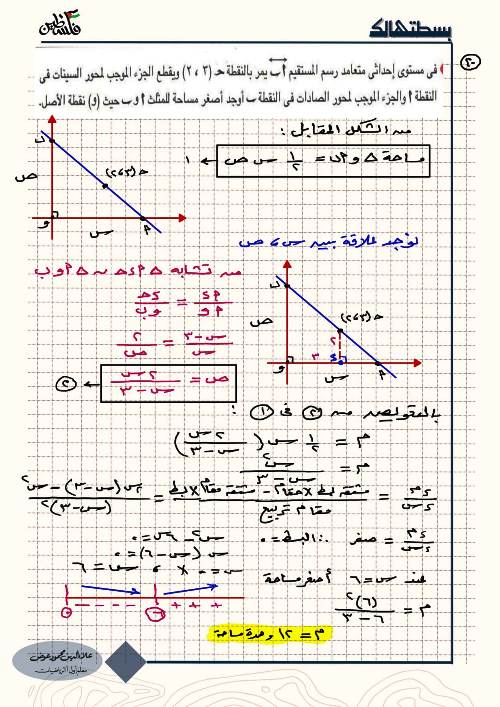 فلسطين
بسطتهالك
٢٠
في مستوى إحداثي متعامد رسم المستقيم أب يمر بالنقطة حـ (٣ ، ٢) ويقطع الجزء الموجب لمحور السينات فى
النقطة أ والجزء الموجب لمحور الصادات فى النقطة ب أوجد أصغر مساحة للمثلث أ و ب حيث (و) نقطة الأصل.
من الشكل المقابل :
مساحة △ و أ ب = ١/٢ س ص ← ١
ب
ص
حـ (٢،٣)
و
س
أ
نوجد علاقة بين س ، ص
من تشابه △ أ د حـ ~ △ أ و ب
أد/أو = دحـ/وب
س-٣/س = ٢/ص
ص = ٢س/س-٣ ← ٢
ب
ص
حـ (٢،٣)
٢
٣
و
د
أ
س
بالتعويض من ٢ في ١ :
م = ١/٢ س (٢س/س-٣)
م = س٢/س-٣
دم/دس = مشتقة بسط × مقام - مشتقة مقام × بسط/مقام تربيع = ٢س(س-٣) - س٢/(س-٣)٢
دم/دس = صفر ∴ البسط = ٠ س٢ - ٦س = ٠
س(س-٦) = ٠
س = ٠ × ، س = ٦
عند س = ٦ أصغر مساحة
٣ - - - - ٦ + + +
م = (٦)٢/٦-٣
م = ١٢ وحدة مساحة
علاء الدين محمود عوض
معلم أول الرياضيات